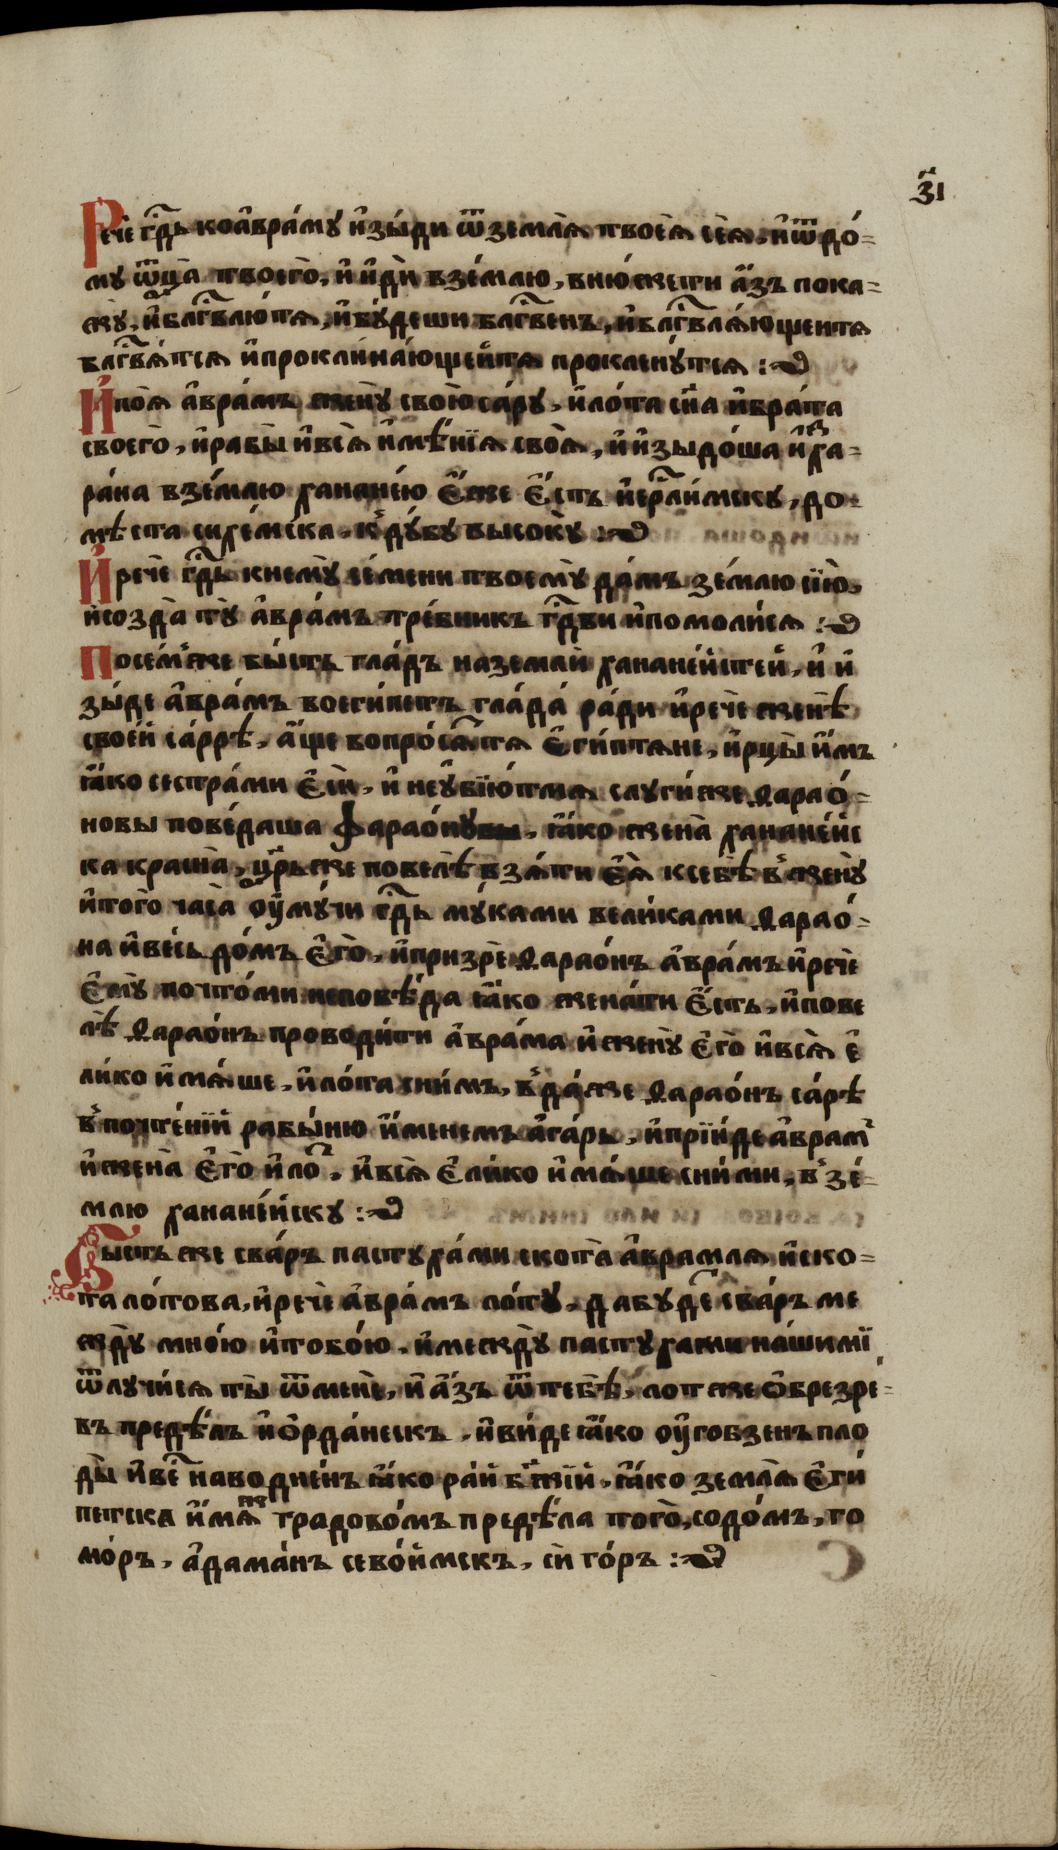 з҃і
Рече́ гдⷭ҇ь коа҆вра́му и҆зы́ди ѿземлѧ̀ твоеѧ̀ сеѧ̀, и҆ѿдо́=
му ѿц҃а̀ твоего̀, и҆ и҆дѝ взе́млю, внюжети а҆́зъ пока=
жу̀, и҆блгⷭ҇влю́тѧ, и҆бу́деши блгⷭ҇венъ, и҆блгⷭ҇влѧ́ющеитѧ
блгⷭ҇вѧ́тсѧ и҆проклина́ющеи҆тѧ прокленутсѧ :
И҆поѧ̀ а҆вра́мъ жену̀ свою̀ са́ру, и҆ло́та сн҃а и҆бра́та
своего̀, и҆рабы̀ и҆всѧ̀ и҆мѣ́нїѧ своѧ̀, и҆ и҆зыдо́ша иꙁ҆ха=
ра́на взе́млю ханане́ю є҆́же є҆́сть и҆ерⷭ҇ли́мску, до=
мѣста сихе́мска, кд́убу высоку̀ :
И҆речѐ гдⷭ҇ь кнему̀ се́мени твоему̀ да́мъ зе́млю сїю̀,
и҆созда̀ ту̀ а҆вра́мъ тре́бникъ гдⷭ҇ви и҆помоли́сѧ :
Посе́мже бы́сть гла́дъ наземлѝ ханане́йстей, и҆ и҆
зы́де а҆вра́мъ воеги́петъ гла́да́ ра́ди и҆речѐ женѣ̀
свое́й са́ррѣ, а҆́ще вопро́сѧтъ тѧ є҆ги́птѧне, и҆рцы̀ и҆̀мъ
ꙗ҆́ко сестра́ми є҆сѝ, и҆ неꙋ҆бїю́тмѧ слуги́же ѳарао́=
новы пове́даша фарао́новы, ꙗ҆́ко жена̀ ханане́йс
ка красна̀, цр҃ьже повелѣ̀ взѧ́ти є҆ѧ̀ ксебѣ̀ вжену̀
и҆того̀ часа̀ ᲂу҆мучи гдⷭ҇ь му́ками вели́ками ѳарао́=
на и҆ве́сь до́мъ є҆го̀, и҆призрѐ ѳарао́нъ а҆вра́мъ и҆речѐ
є҆му̀ почто́ми неповѣ́да ꙗ҆́ко жена́ти є҆́сть, и҆пове
лѣ̀ ѳарао́нъ проводи́ти а҆вра́ма и҆жену̀ є҆го̀ и҆всѧ̀ є҆
ли́ко и҆мѧ́ше, и҆ло́та сни́мъ, вда́же ѳарао́нъ са́рѣ
впочте́нїй рабы́ню и҆́менемъ а҆га́рь, и҆прїи́де а҆врамⸯ
и҆жена̀ є҆го̀ и҆лоⷮ, и҆всѧ̀ є҆ли́ко и҆мѧ́ше сни́ми, взе́=
млю ханане́йску :
Бы́сть же сва́ръ пастуха́ми скота̀ а҆врамлѧ и҆ско=
та ло́това, и҆речѐ а҆вра́мъ ло́ту, дабуде сва́ръ ме
жду̀ мно́ю и҆тобо́ю, и҆между̀ пастухами на́шимї,
ѿлучи́сѧ ты̀ ѿменѐ, и҆ а҆́зъ ѿтебѣ̀, лотже ѻ҆брезре=
въ предѣ́лъ и҆ѻрда́нескъ, и҆ви́де ꙗ҆́ко ᲂу҆гобзенъ пло
ды̀ и҆веⷭ҇ наводне́нъ ꙗ҆́ко ра́й бж҃їй, ꙗ҆́ко землѧ̀ є҆ги́
петска и҆́мѧже градово́мъ предѣ́ла того̀, содо́мъ, го
мо́ръ, а҆дама́нъ сево́имскъ, сиго́ръ :